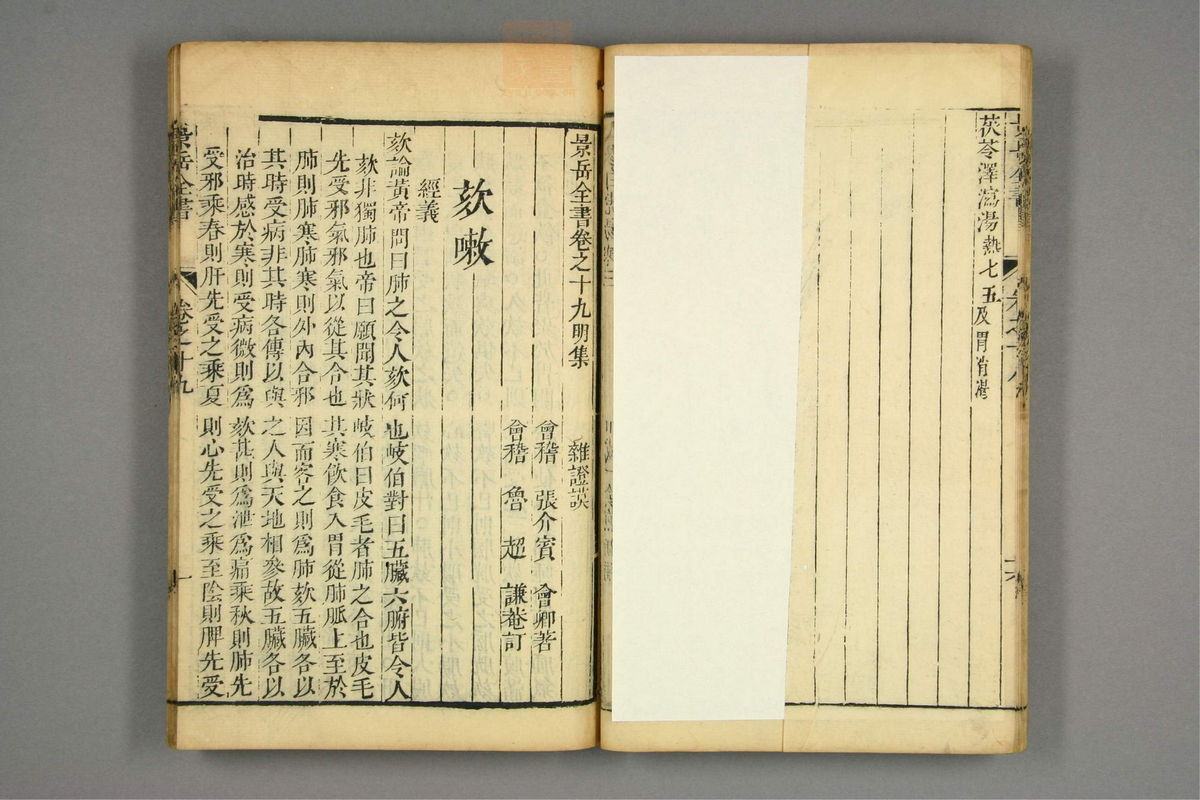 茯苓澤瀉湯熱七五
及胃消渴
景岳全書卷之十九明集
雜證謨
會稽 張介賓 會卿著
會稽 魯超 謙菴訂
欬嗽
經義
欬論黃帝問曰肺之令人欬何也岐伯對曰五臟六腑皆令人
欬非獨肺也帝曰願聞其狀岐伯曰皮毛者肺之合也皮毛
先受邪氣邪氣以從其合也其寒飲食入胃從肺脈上至於
肺則肺寒肺寒則外內合邪因而客之則爲肺欬五臟各以
其時受病非其時各傳以與之人與天地相參故五臟各以
治時感於寒則受病微則爲欬甚則爲泄爲痛乘秋則肺先
受邪乘春則肝先受之乘夏則心先受之乘至陰則脾先受
景岳全書
卷之十九
一